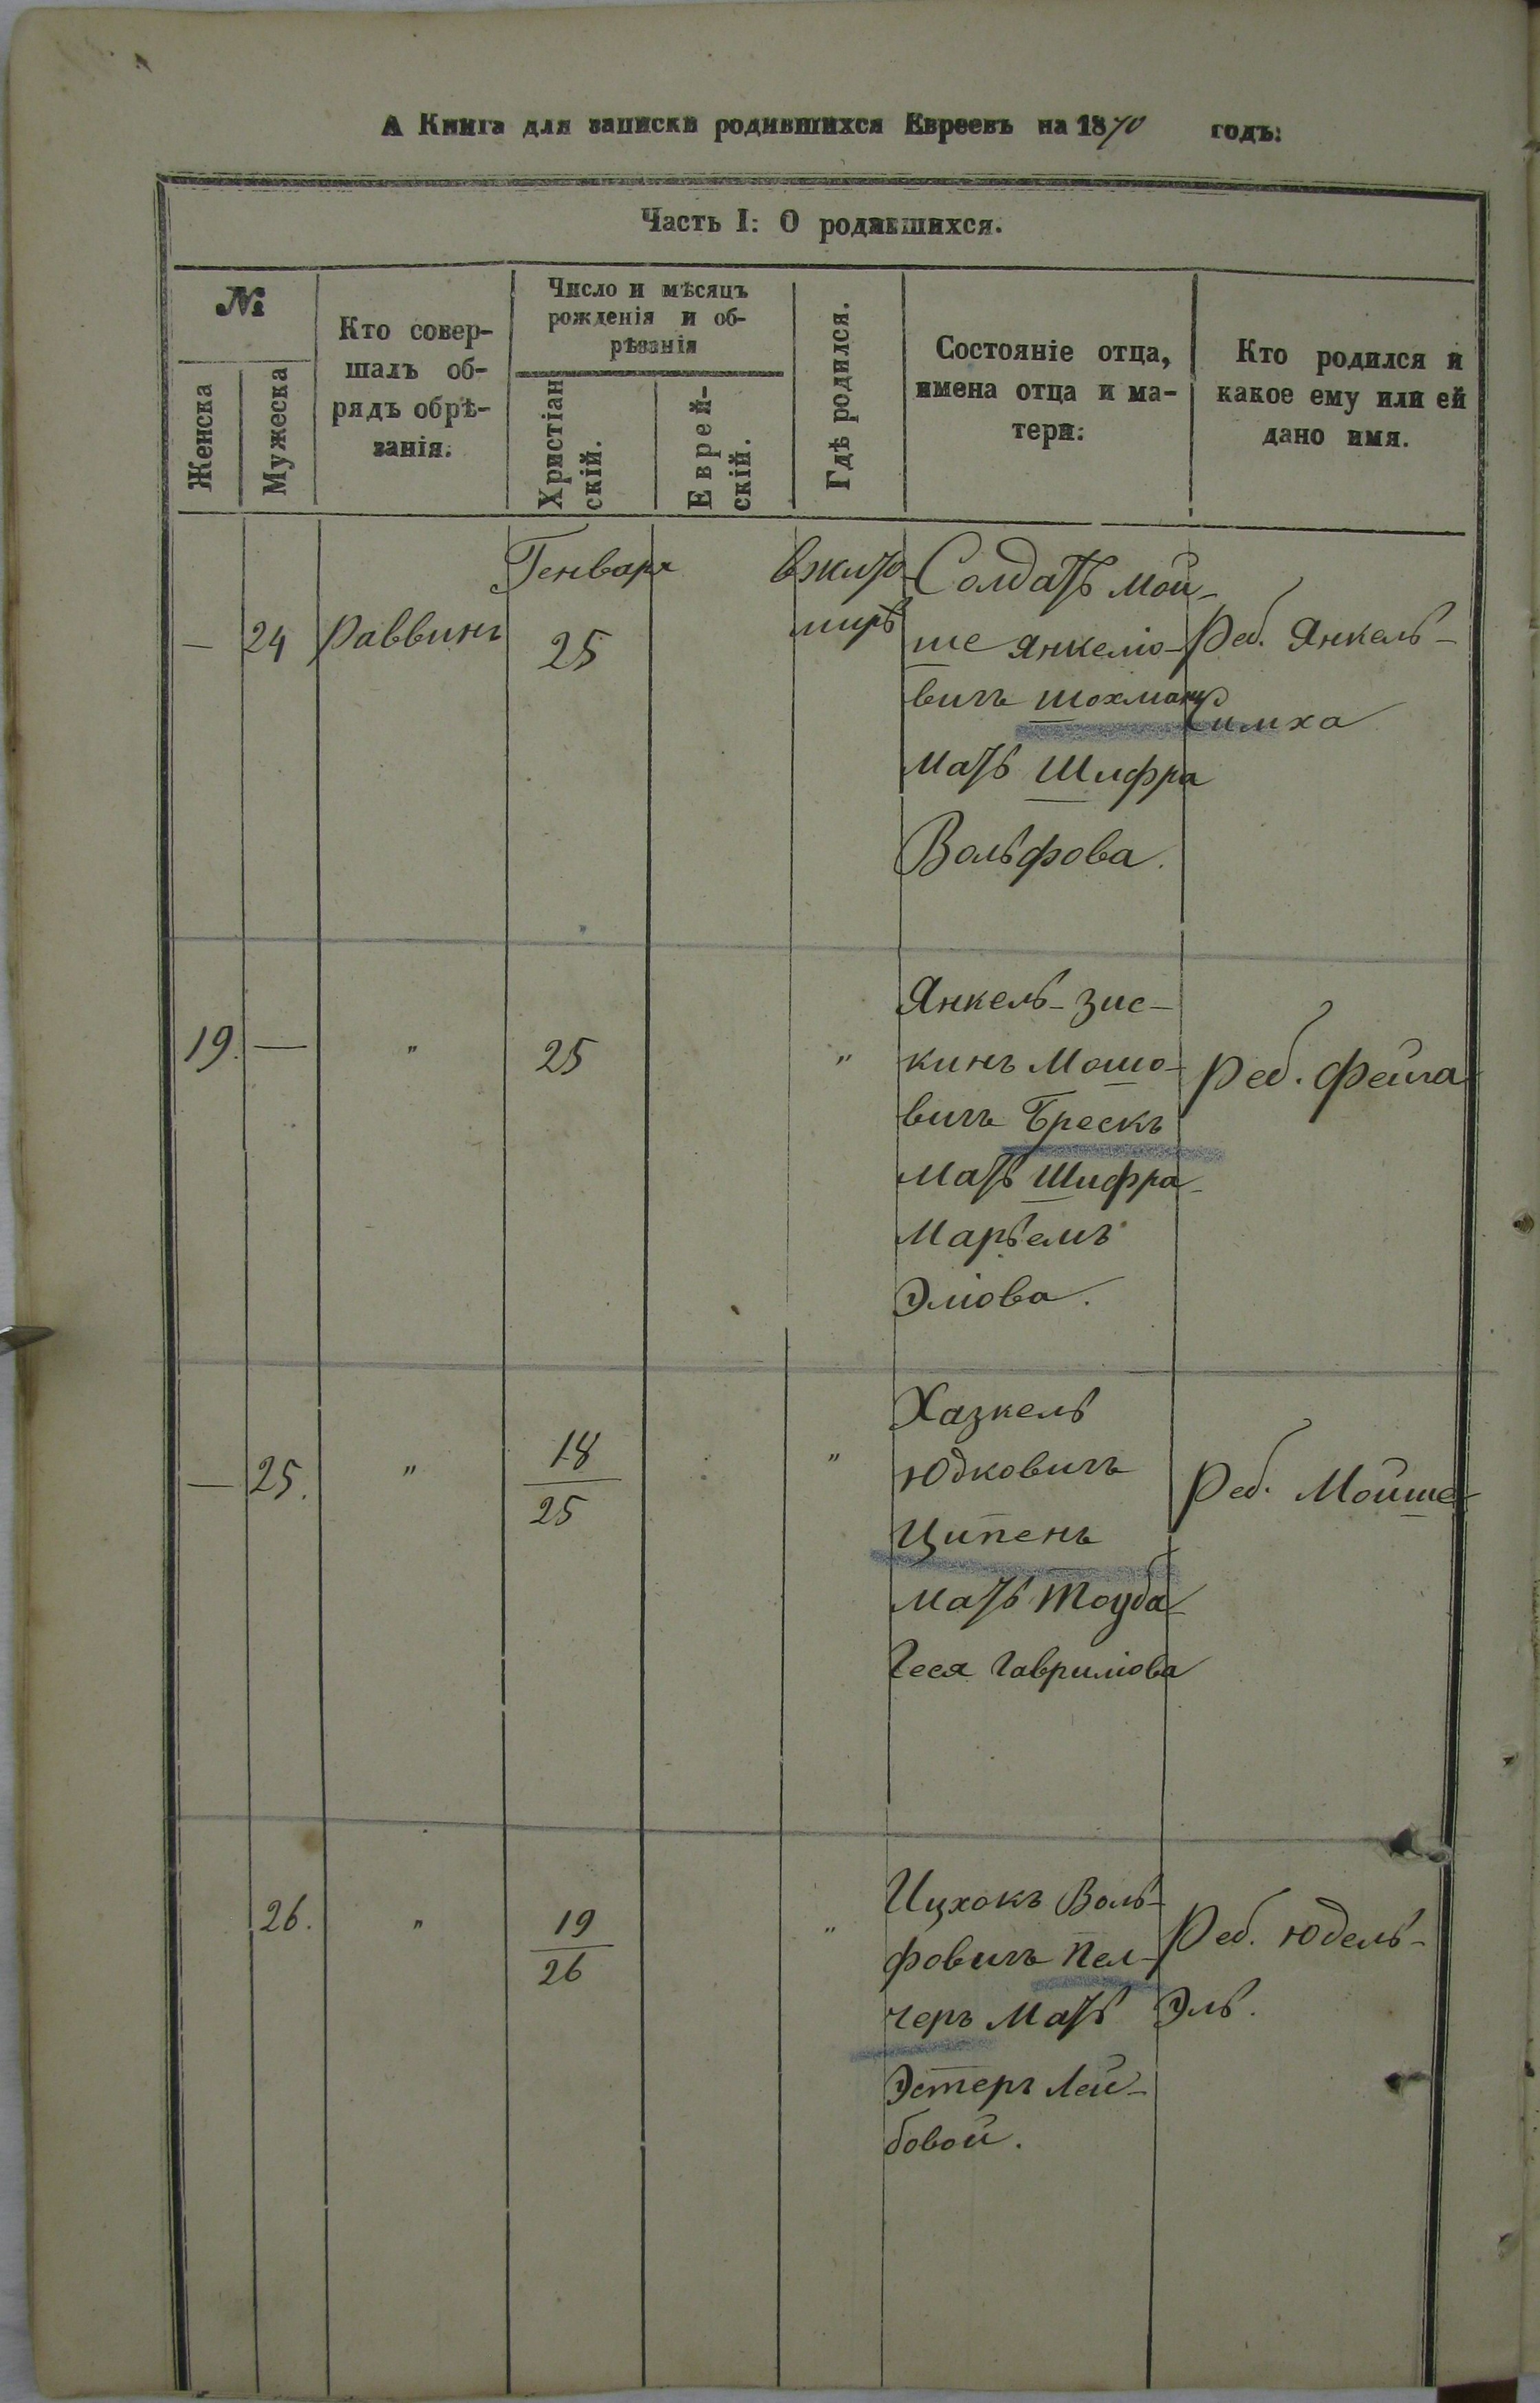 А Книга для записки родившихся Евреевъ на 1870 годъ:
Часть I: О родившихся.
№
Женска
Мужеска
Кто совер-
шалъ об-
рядъ обрѣ-
занія.
Число и мѣсяцъ
рожденія и об-
рѣзанія
Христіан
скій.
Еврей-
скій.
Гдѣ родился.
Состояніе отца,
имена отца и ма-
тери:
Кто родился и
какое ему или ей
дано имя.
— 24 Раввинъ
Генваря
25
вжито
мирѣ
Солдатъ Мой-
ше Янкеліо-
вичъ Шохманъ
Мать Шифра
Вольфова.
Реб. Янкель-
Симха
19. — " 25 "
Янкель-Зис-
кинъ Мошо-
вичъ Брескъ
Мать Шифра-
Марьемъ
Эліова.
Реб. Фейга
— 25. "
18
25
"
Хазкель
Юдковичъ
Ципенъ
Мать Тауба-
Геся Гавриліова
Реб. Мойше
26. "
19
26
"
Ицхокъ Воль-
фовичъ Пел-
черъ Мать
Эстеръ Лей-
бовой.
Реб. Юдель-
Эль.